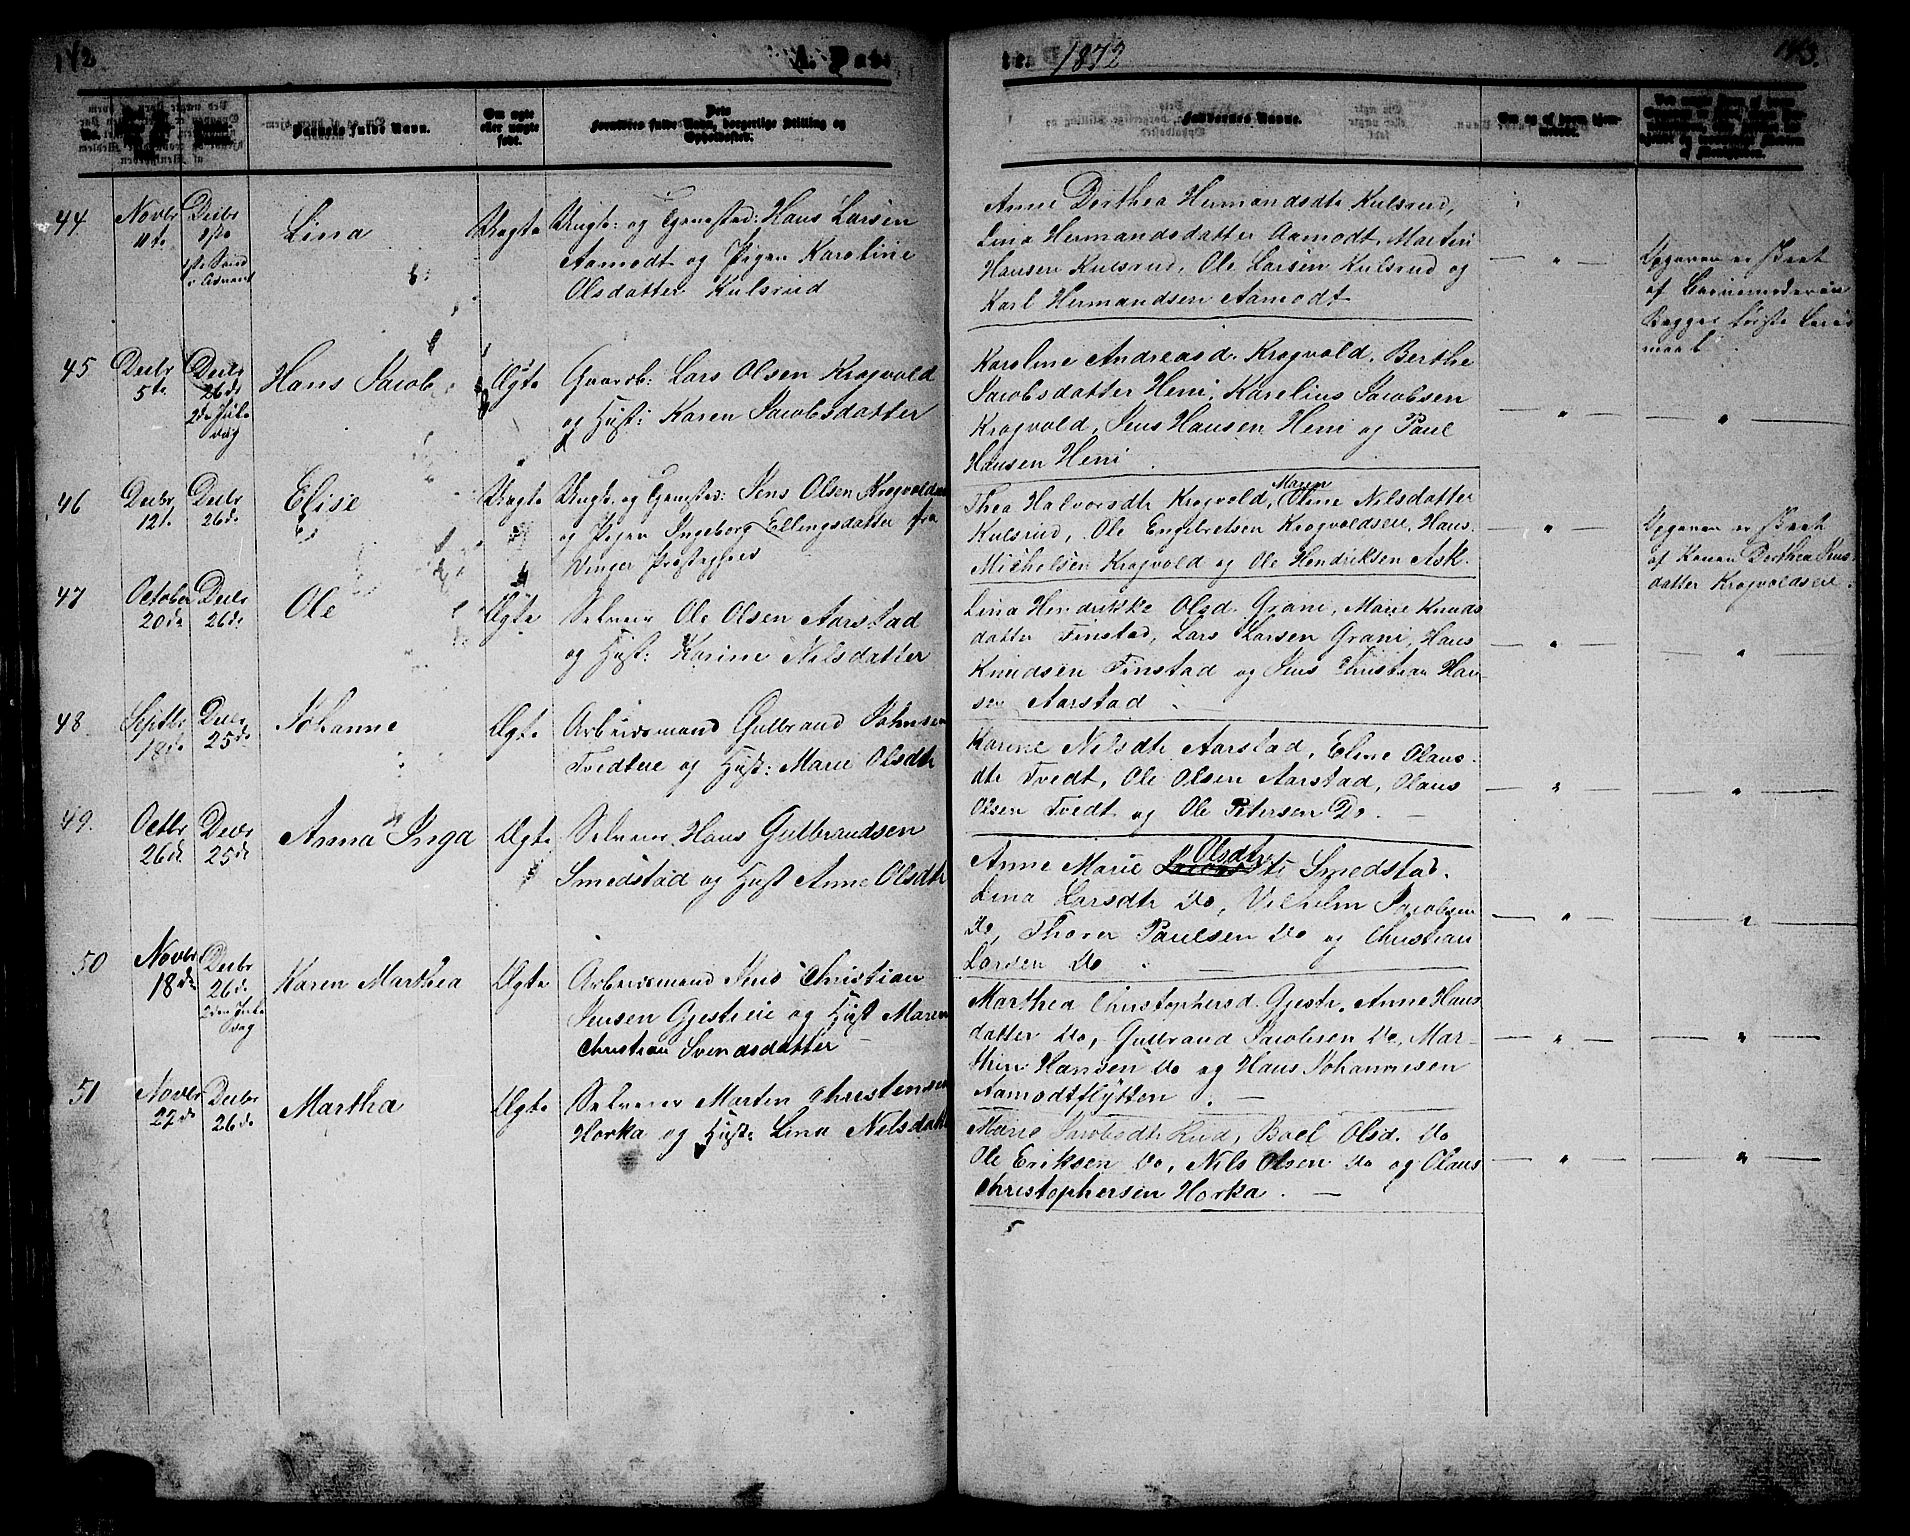 142
A. Døb-
te. 1872
143.
No.
Barnets fulde Navn.
Om ægte
eller uægte
født.
Forældres fulde Navn, borgerlige Stilling og
Opholdssted.
Faddernes Navne.
Om og af hvem hjem-
medøbt.
44
Novbr
11te
Decbr
1ste
1ste Sønd
i Advent
Lina
Uægte
Ungk: og Tjenested: Hans Larsen
Aamodt og Pigen Karoline
Olsdatter Kulsrud
Anne Dorthea Hermandsdtr Kulsrud,
Lina Hermandsdatter Aamodt, Martin
Hansen Kulsrud, Ole Larsen Kulsrud og
Karl Hermandsen Aamodt
— " —
Opgaven er skeet
af Barnemoderen
Begges første Leier
maal
45
Decbr
5te
Decbr
26de
2de Jule
dag
Hans Jacob
Ægte
Gaardb: Lars Olsen Krogvold
og Hust: Karen Jacobsdatter
Karoline Andreasd. Krogvold, Berthe
Jacobsdatter Heni, Karelius Jacobsen
Krogvold, Jens Hansen Heni og Paul
Hansen Heni
— " —
— " —
46
Decbr
12t.
Decbr
26de
Elise
Uægte
Ungk. og Tjenestед: Jens Olsen Krogvold
og Pigen Ingeborg Ellingsdatter fra
Vinger Præstegjeld
Thea Halvorsdtr Krogvold, Maren Oline Nilsdatter
Kulsrud, Ole Engebretsen Krogvoldseie, Hans
Michelsen Krogvold og Ole Hendriksen Ask.
— " —
Opgaven er skeet
af Konen Dorthea Jens
datter Krogvoldseie.
47
October
20de
Decbr
26de
Ole
Ægte
Selveier Ole Olsen Aarstad
og Hust: Karine Nilsdatter
Lina Hendrikke Olsd. Grani, Marie Knuds
datter Finstad, Lars Larsen Grani, Hans
Knudsen Finstad og Jens Christian Han-
sen Aarstad
— " —
— " —
48.
Septbr
18de
Decbr
25de
Johanne
Ægte
Arbeidsmand Gulbrand Johnsen
Tvedteie og Hust: Marie Olsdtr
Karine Nilsdtr Aarstad, Eline Olaus
dtr Tvedt, Ole Olsen Aarstad, Olaus
Olsen Tvedt og Ole Petersen Do. —
— " —
— " —
49.
Octbr
26de
Decbr
25de
Anna Inga
Ægte
Selveier Hans Gulbrandsen
Smedstad og Hust Anne Olsdtr
Anne Marie Olsdtr Smedstad.
Lina Larsdtr Do, Vilhelm Jacobsen
Do, Thorer Paulsen Do og Christian
Larsen Do —
— " —
— " —
50
Novbr
18de
Decbr
26de
2den Jule
dag
Karen Marthea
Ægte
Arbeidsmand Jens Christian
Jensen Gjestreie og Hust Maren
Christian Svendsdatter —
Marthea Christophersd. Gjestr, Anne Hans
datter Do, Gulbrand Jacobsen Do, Mar-
thin Hansen Do og Hans Johannesen
Aamodtflytten. —
— " —
— " —
51
Novbr
27de
Decbr
26de
Martha
Ægte
Selveier Morten Christensen
Horka og Hust: Lina Nilsdatter
Marie Jacobsdtr Rud, Boel Olsd. Do
Ole Eriksen Do, Nils Olsen Do og Olaus
Christophersen Horka. —
— " —
— " —
5